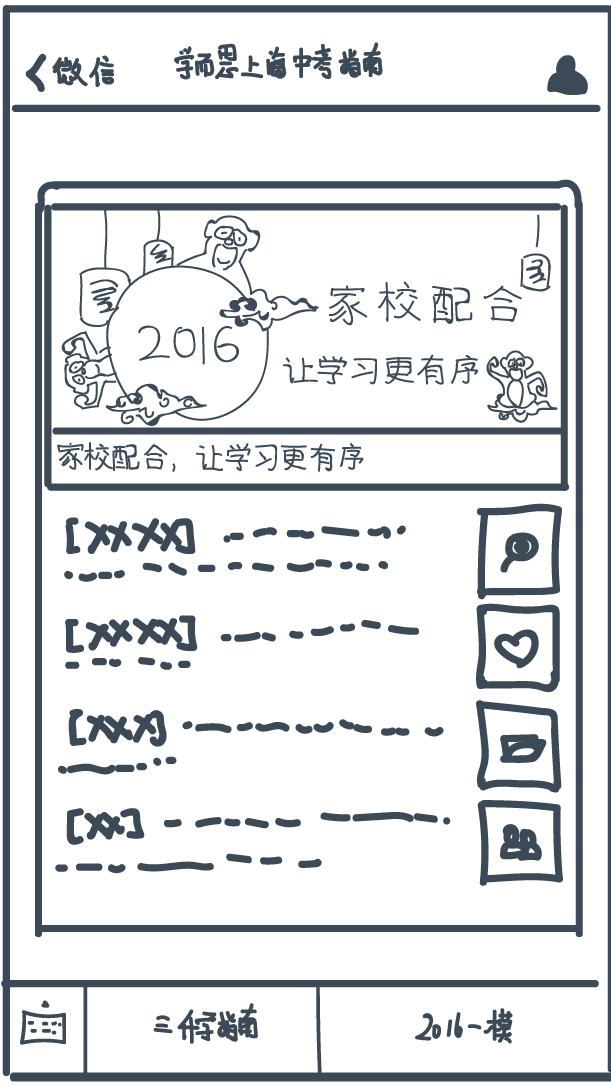 微信
学而思上海中考指南
2016
家校配合
让学习更有序
家校配合，让学习更有序
[XXXX]
[XXXX]
[XXX]
[XX]
三升学指南
2016一模